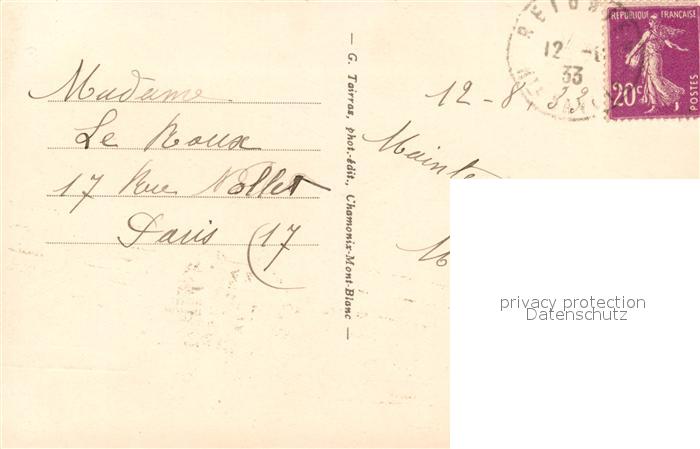 Madame
Le Roux
17 Rue Nollet
Paris (17
— G. Tairraz, phot.-édit., Chamonix-Mont-Blanc —
12
33
REPUBLIQUE FRANÇAISE
20c
POSTES
12-8-33
privacy protection
Datenschutz